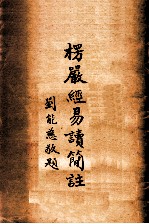 楞嚴經易讀簡註
劉能慈敬題